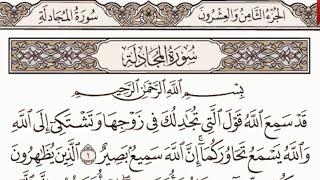 الجزء الثامن والعشرون
سورة المجادلة
سُورَةُ المُجَادلَةِ
بِسْمِ اللَّهِ الرَّحْمَٰنِ الرَّحِيمِ
قَدْ سَمِعَ اللَّهُ قَوْلَ الَّتِي تُجَٰدِلُكَ فِي زَوْجِهَا وَتَشْتَكِيٓ إِلَى اللَّهِ
وَاللَّهُ يَسْمَعُ تَحَاوُرَكُمَآ إِنَّ اللَّهَ سَمِيعٌۢ بَصِيرٌ ۝١ الَّذِينَ يُظَٰهِرُونَ